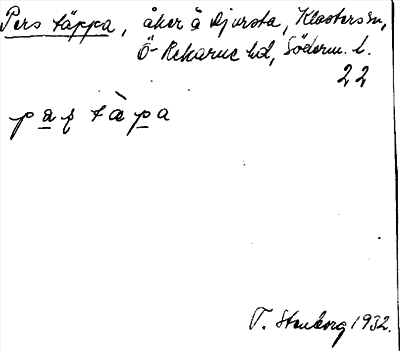 Pers täppa, åker å Djursta, Klosters sn,
Ö-Rekarne hd, Söderm. l.
22
pas tàpa
T. Stenborg 1932.